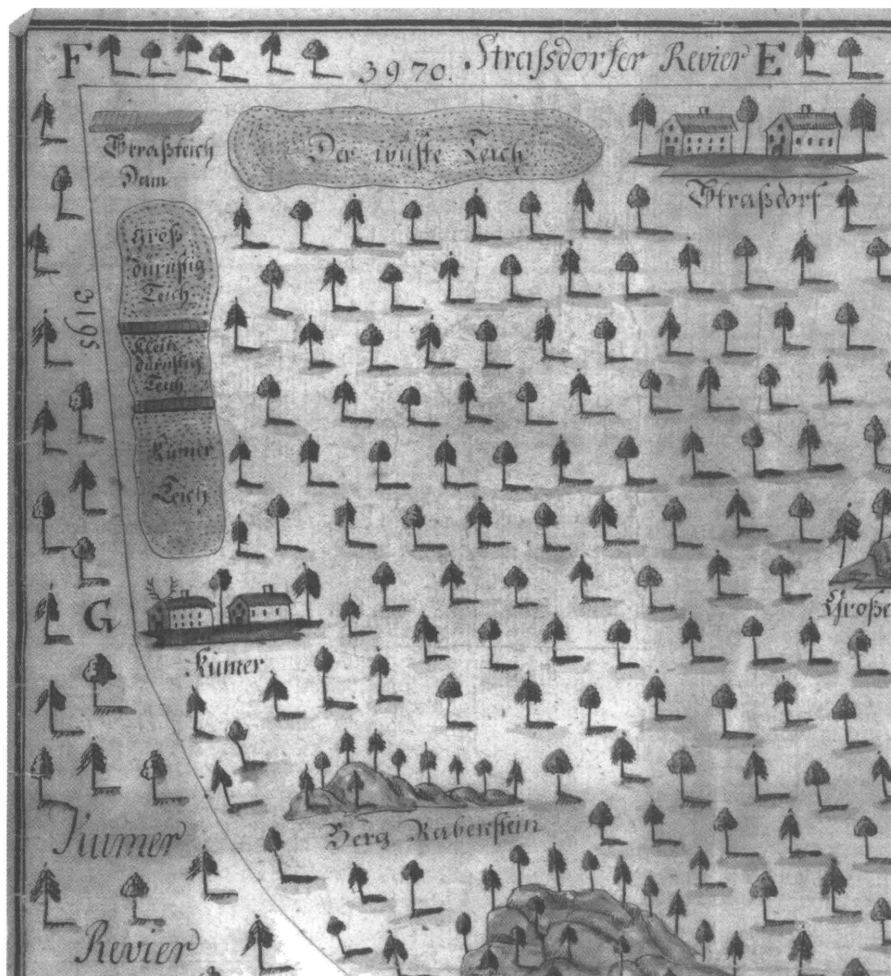 F
3970. Straßdorfer Revier E
Straßteich
Dam
Der wuste Teich
Straßdorf
Groß
durstig
Teich
3195
Klein
durstig
Teich
Kumer
Teich
G
Große
Kumer
Berg Rabenstein
Kumer
Revier